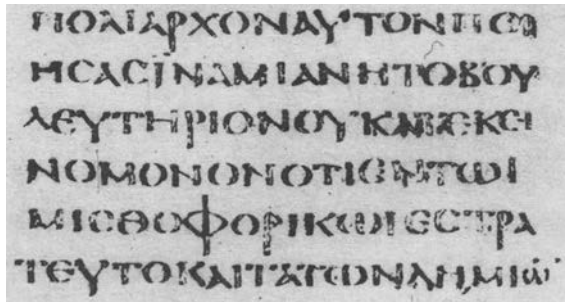 ΠΟΛΙΑΡΧΟΝΑΥΤΟΝ
ΗCΑCΪΝΑΜΙΑΝΗΤΟΒΟΥ
ΛΕΥΤΗΡΙΟΝΟΥΚΑΠΕΚΕΙ
ΝΟΜΟΝΟΝΟΝΟΤΙΕΝΤΩΙ
ΜΙCΘΟΦΟΡΙΚΩΙΕCΤΡΑ
ΤΕΥΤΟΚΑΙΤΑΤΩΝΔΗΜΙΩ